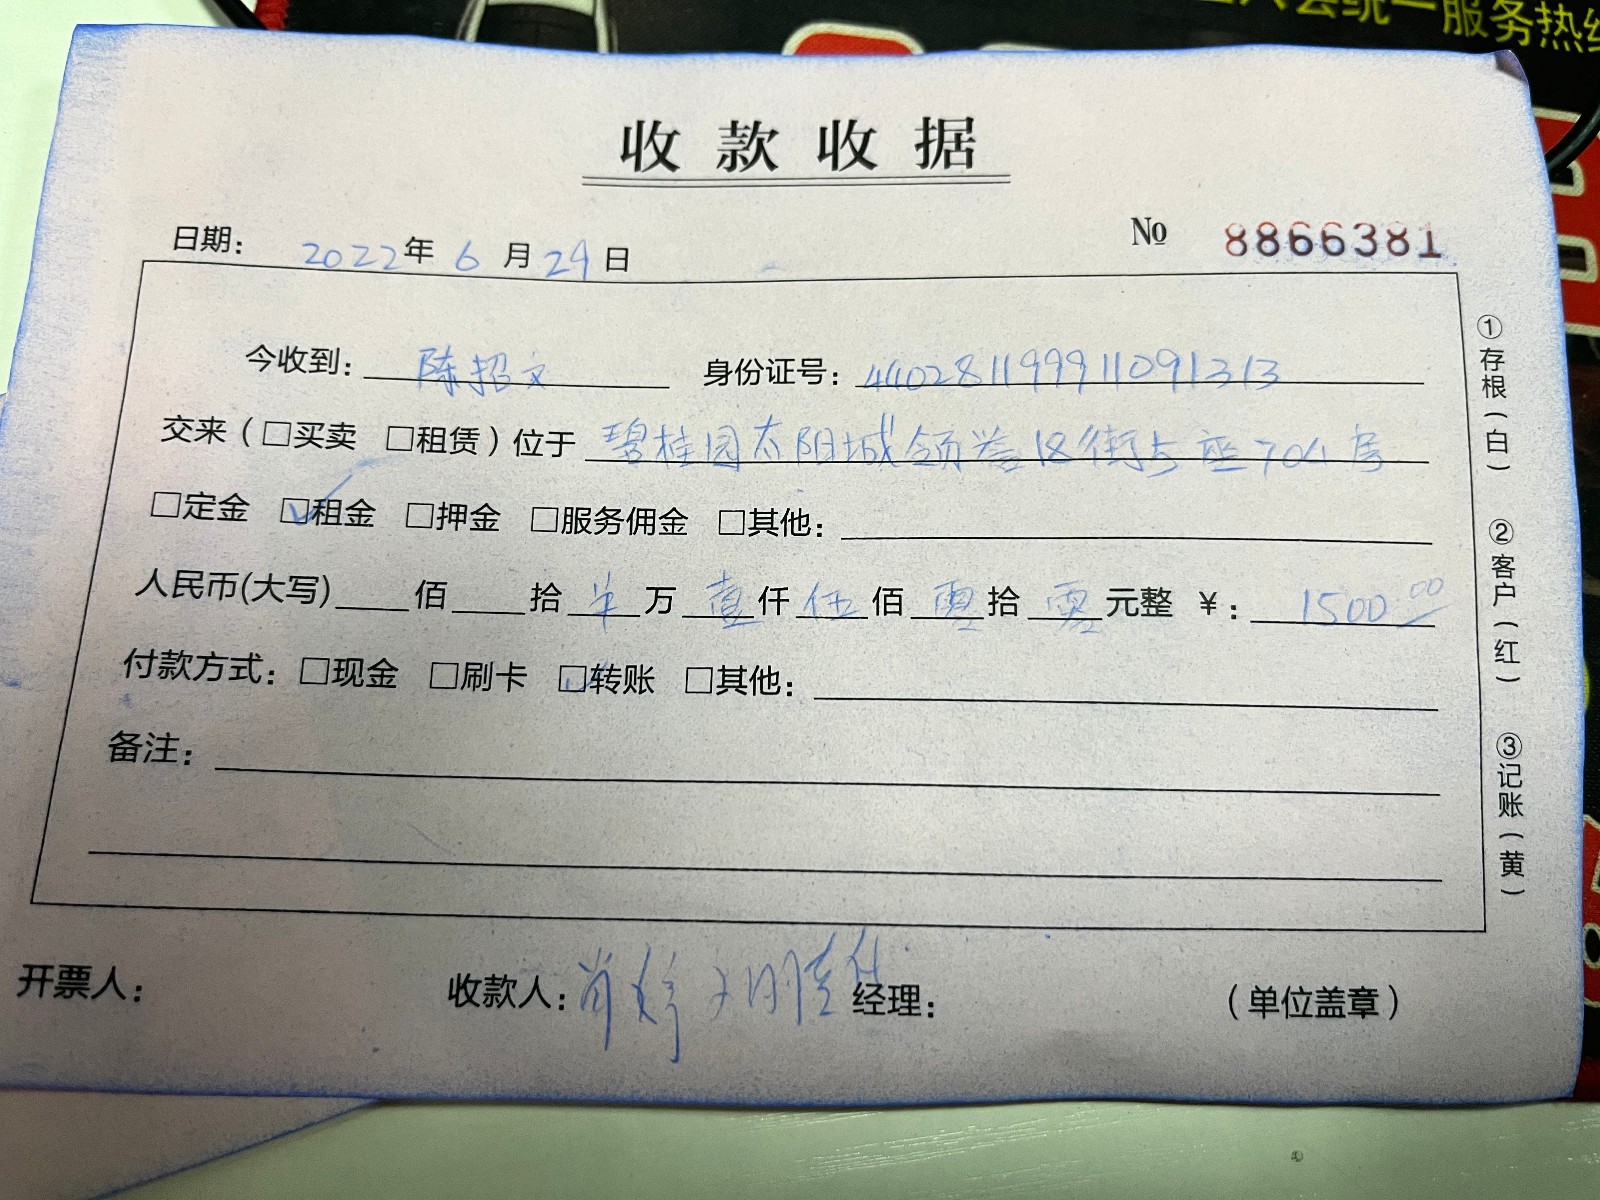 统一服务热线
收款收据
日期： 2022年 6 月 29 日 № 8866381
今收到： 陈招文 身份证号： 440281199911091313
交来（□买卖 □租赁）位于 碧桂园太阳城领誉18街5座704房
□定金 ☑租金 □押金 □服务佣金 □其他：
人民币(大写) 佰 拾 万 壹仟 伍佰 零拾 零元整 ￥： 1500.00
付款方式：□现金 □刷卡 ☑转账 □其他：
备注：
开票人： 收款人： 经理： （单位盖章）
①存根（白） ②客户（红） ③记账（黄）